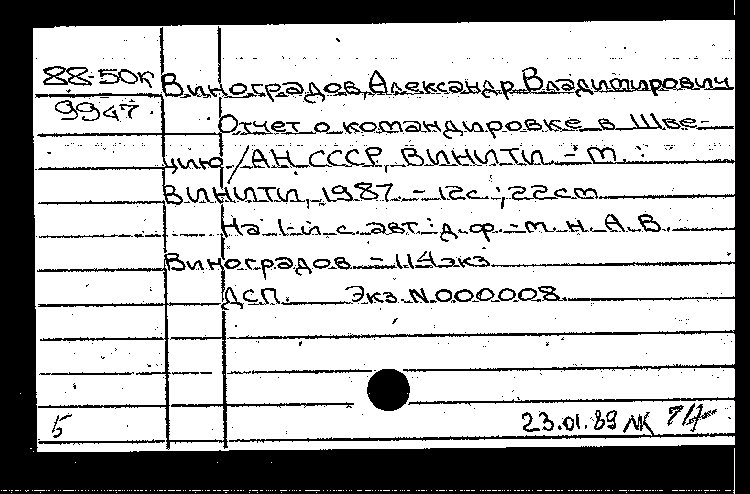 88-50к Виноградов, Александр Владимирович
9947
Отчет о командировке в Шве-
цию / АН СССР, ВИНИТИ. - М. :
ВИНИТИ, 1987. - 12с. ; 22см
На 1-й с. авт.: д. ф.-м. н. А. В.
Виноградов. - 114экз.
ДСП. Экз. N000008.
5 23.01.89